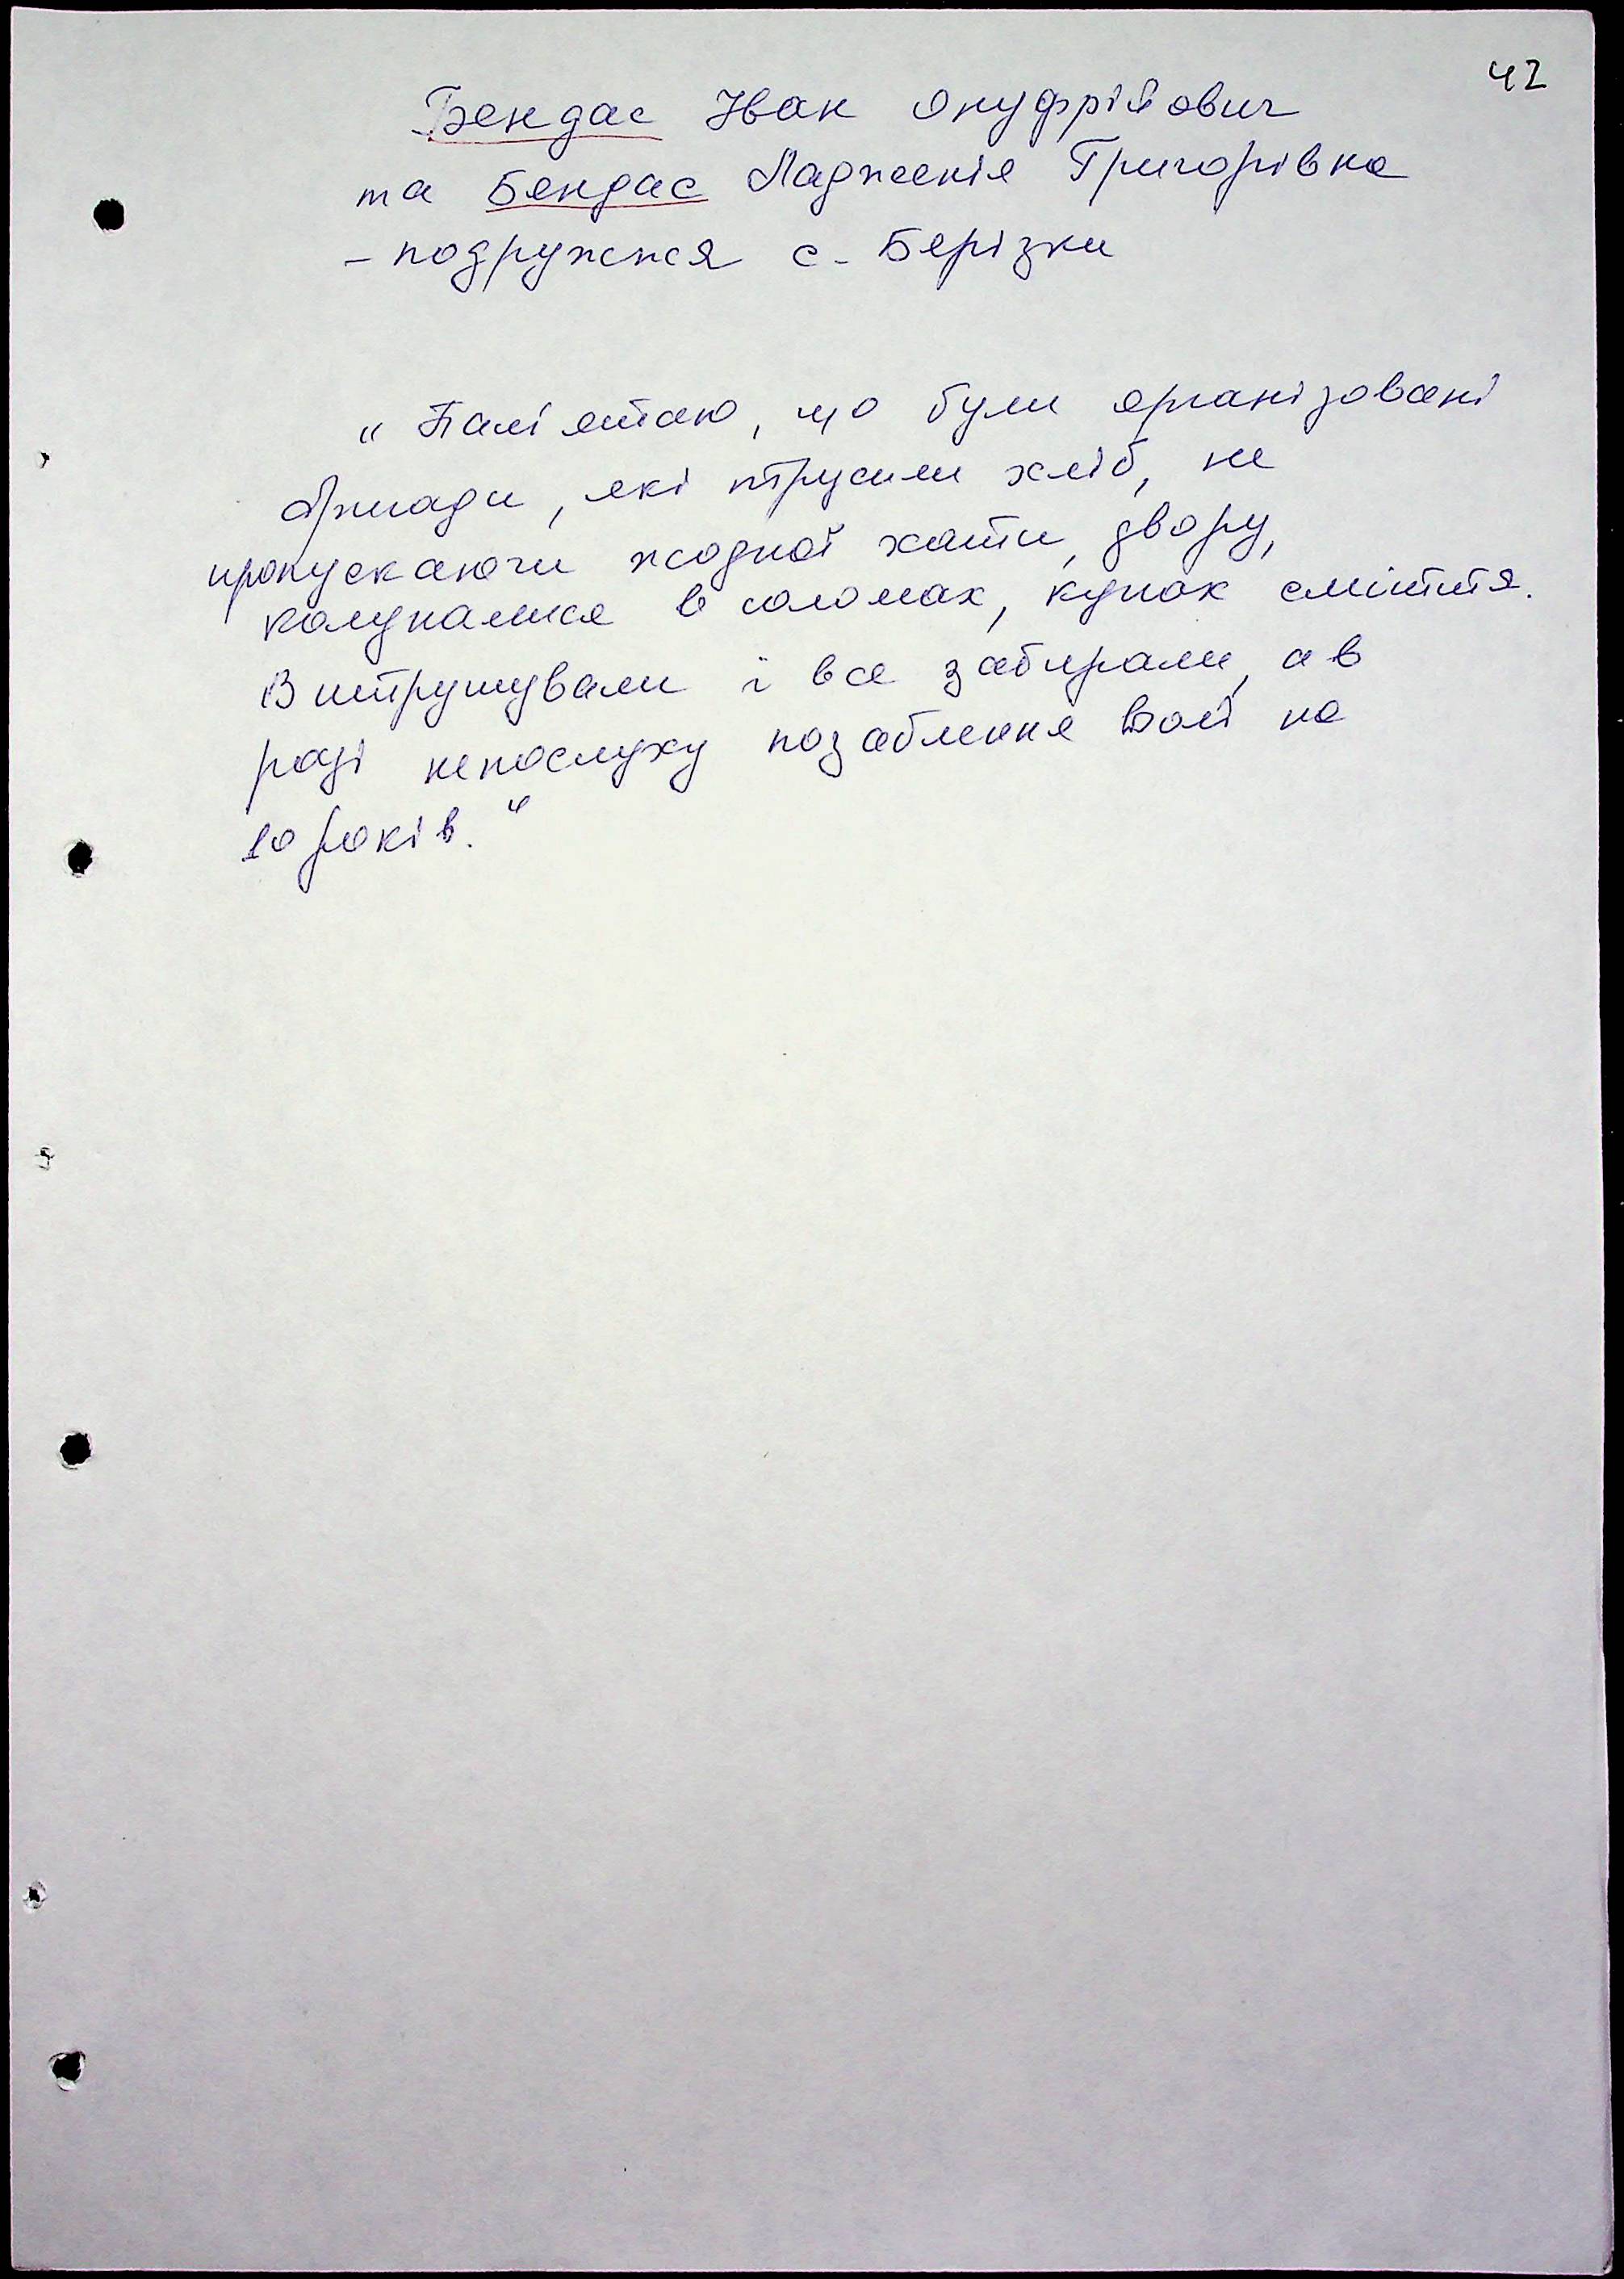 42
Бендас Іван Онуфрійович
та Бендас Ладженія Григорівна
- подружжя с. Берізки
"Пам'ятаю, що були організовані
бригади, які трусили хліб, не
пропускаючи жодної хати, двору,
колупалися в соломах, купах сміття.
Витрушували і все забирали, а в
разі непослуху позбавлення волі на
10 років."